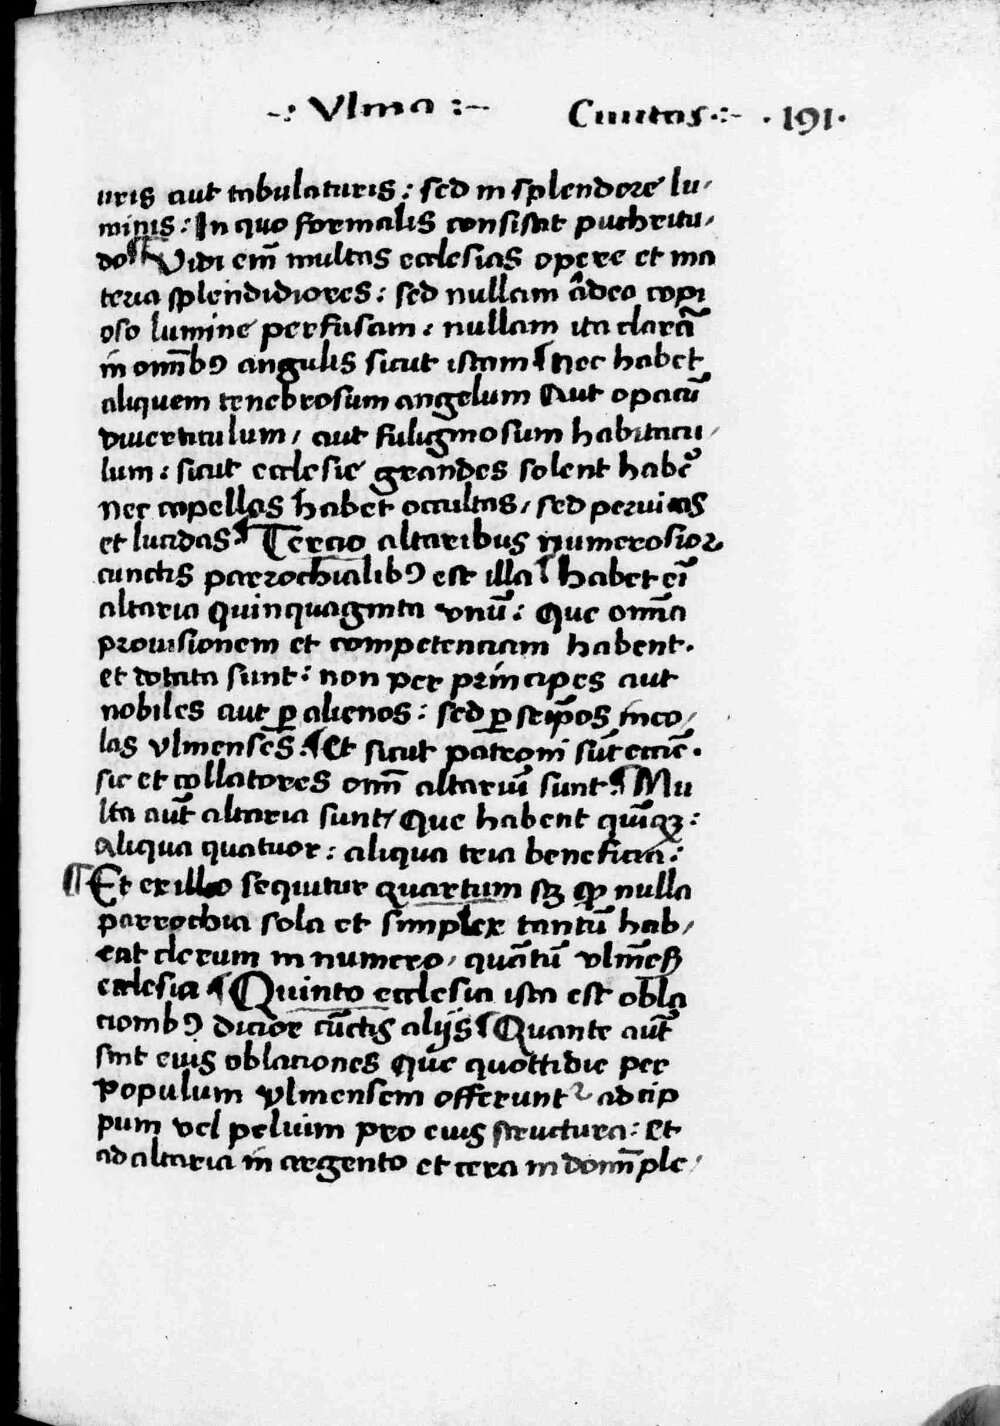 -: Vlma :- Ciuitas :- · 191 ·
uris aut tabulaturis : sed in splendore lu/
minis : In quo formalis consistat puchritu/
do ¶ Vidi em̄ multas ecclesias opere et ma
teria splendidiores : sed nullam adeo copi
oso lumine perfusam : nullam ita clarā
in om̄ibꝰ angulis sicut istam ¶ Nec habet
aliquem tenebrosum angelum Aut opacū
diuerticulum / aut fuliginosum habitacu/
lum : sicut ecclesie grandes solent habē
nec capellas habet occultas / sed peruias
et lucidas ¶ Tercio altaribus numerosior
cunctis parrochialibꝰ est illa ¶ habet eī
altaria quinquaginta vnū : Que om̄ia
prouisionem et competenciam habent ·
et dotata sunt : non per principes aut
nobiles aut ꝑ alienos : sed ꝑ seip̄os inco/
las vlmenses : ¶ Et sicut patroni sūt eccīe ·
sic et collatores om̄ altariū sunt ¶ Mu
lta aūt altaria sunt / Que habent quīqꝫ :
Aliqua quatuor : aliqua tria beneficia :
¶ Et ex illo sequitur quartum sꝫ ꝙ nulla
parrochia sola et simplex tantū hab/
eat clerum in numero / quātū vlmēß
ecclesia ¶ Quinto ecclesia ista est obla
cionibꝰ dicior cūctis alijs ¶ Quante aūt
sint eius oblationes que quottidie per
populum vlmensem offerunt᷑ ad cip
pum vel peluim pro eius structura : et
ad altaria in argento et cera in domī ple/